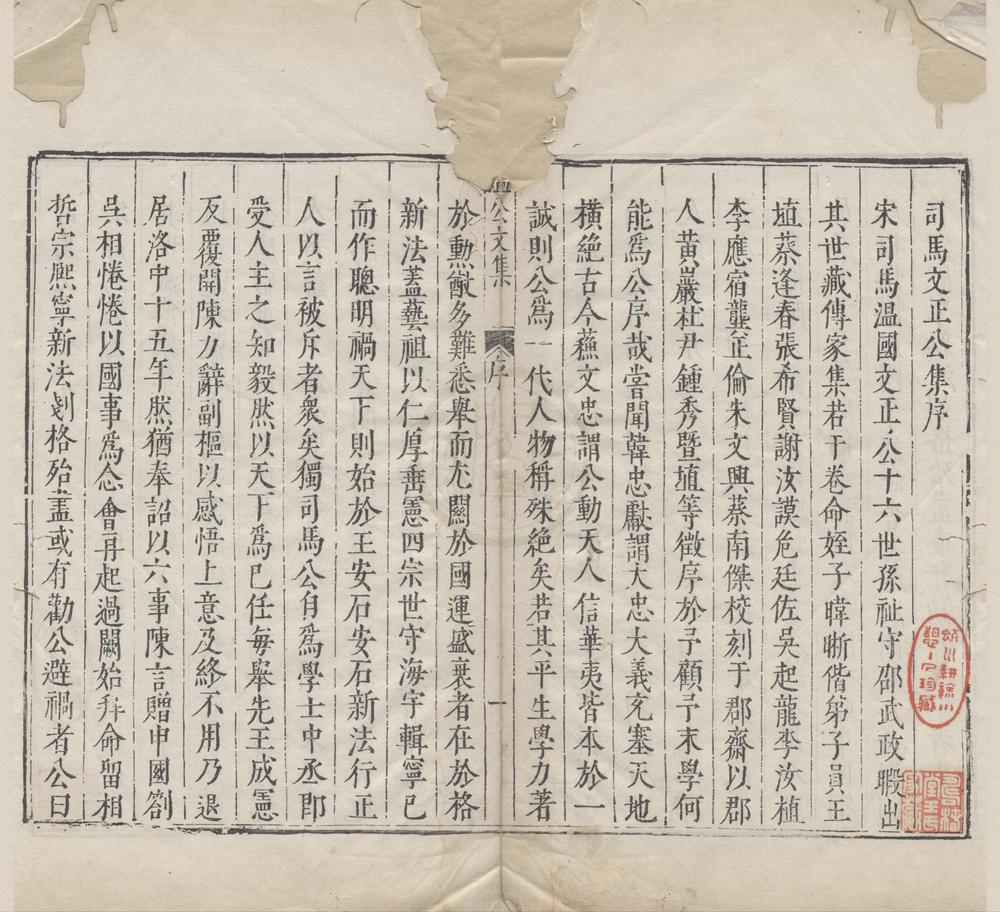 司馬文正公集序
宋司馬溫國文正公十六世孫祉守邵武政暇出
其世藏傳家集若干卷命姪子暐晣偕弟子員王
埴蔡逢春張希賢謝汝謨危廷佐吳起龍李汝植
李應宿龔㒶倫朱文興蔡南傑校刻于郡齋以郡
人黃巖杜尹鍾秀暨埴等徵序於予顧予末學何
能爲公序哉嘗聞韓忠獻謂大忠大義充塞天地
橫絕古今蘇文忠謂公動天人信華夷皆本於一
誠則公爲一代人物稱殊絕矣若其平生學力著
公文集 序 一
於勳猷多難悉舉而尤關於國運盛衰者在於格
新法蓋藝祖以仁厚垂憲四宗世守海宇輯寧已
而作聰明禍天下則始於王安石安石新法行正
人以言被斥者衆矣獨司馬公自爲學士中丞即
受人主之知毅然以天下爲已任每舉先王成憲
反覆開陳力辭副樞以感悟上意及終不用乃退
居洛中十五年然猶奉詔以六事陳言贈申國劄
吳相惓惓以國事爲念會再起過闕始拜命留相
哲宗熈寧新法剗格殆盡或有勸公避禍者公曰